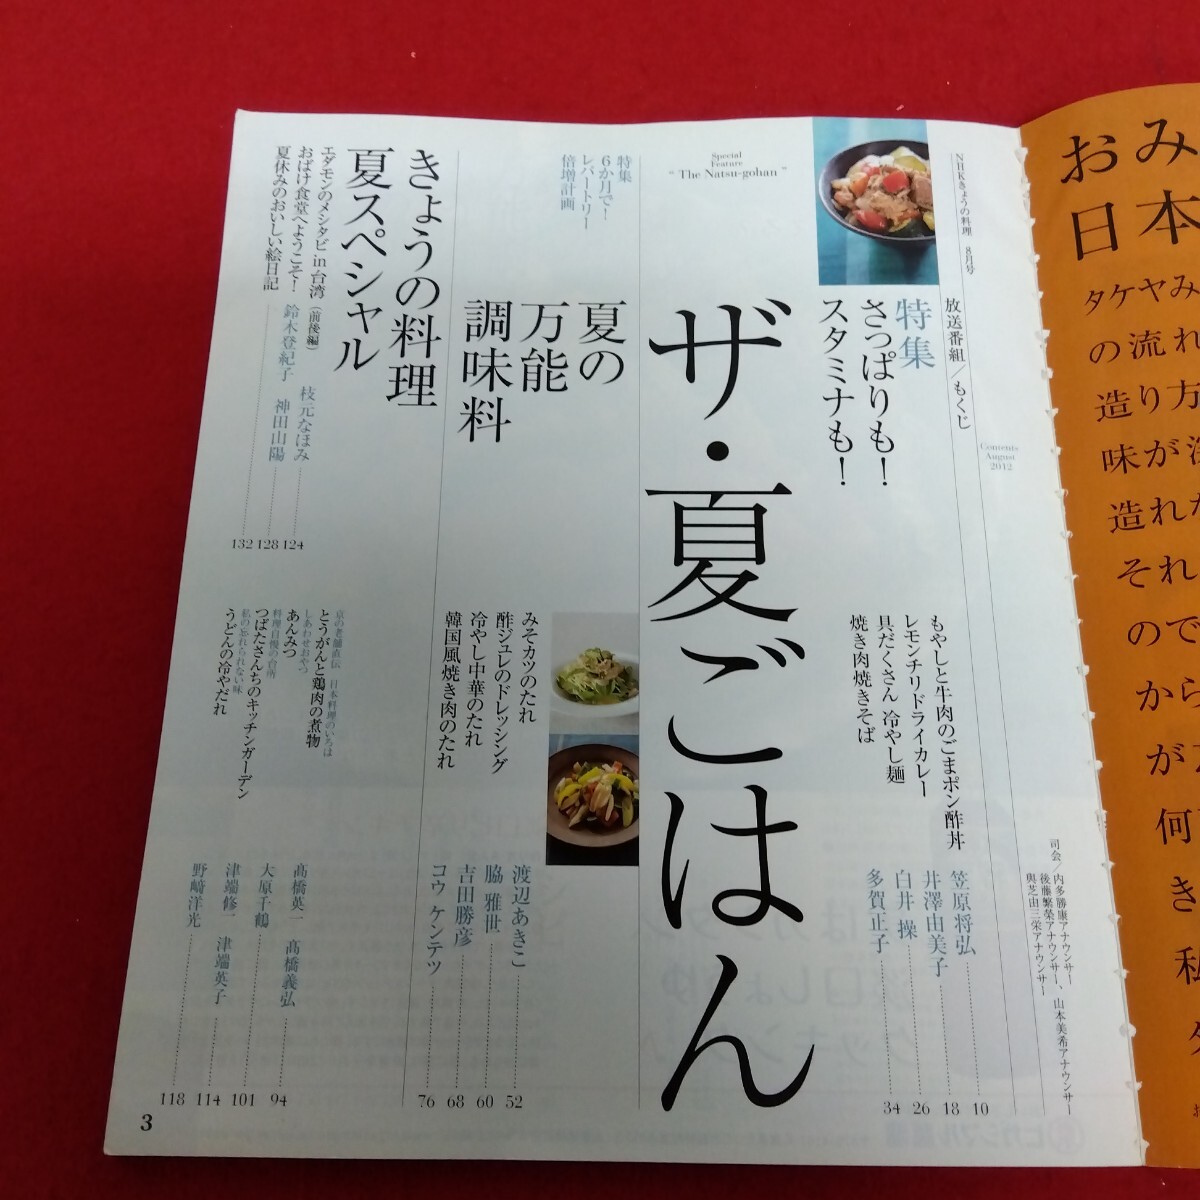 NHKきょうの料理 8月号
放送番組／もくじ
Contents
August
2012
特集
さっぱりも！
スタミナも！
Special
Feature
“The Natsu-gohan”
ザ・夏ごはん
もやしと牛肉のごまポン酢丼
笠原将弘
10
レモンチリドライカレー
井澤由美子
18
具だくさん 冷やし麺
白井 操
26
焼き肉焼きそば
多賀正子
34
司会／内多勝康アナウンサー
後藤繁榮アナウンサー、山本美希アナウンサー
與芝由三栄アナウンサー
特集
6か月で！
レパートリー
倍増計画
夏の
万能
調味料
みそカツのたれ
渡辺あきこ
52
酢ジュレのドレッシング
脇 雅世
60
冷やし中華のたれ
吉田勝彦
68
韓国風焼き肉のたれ
コウ ケンテツ
76
きょうの料理
夏スペシャル
エダモンのメンタビ in 台湾（前後編）
枝元なほみ
124
おばけ食堂へようこそ！
鈴木登紀子 神田山陽
128
夏休みのおいしい絵日記
132
京の老舗直伝 日本料理のいろは
とうがんと鶏肉の煮物
髙橋英一 髙橋義弘
94
しあわせおやつ
あんみつ
大原千鶴
101
料理自慢の台所
つばたさんちのキッチンガーデン
津端修一 津端英子
114
私の忘れられない味
うどんの冷やだれ
野﨑洋光
118
3
おみ
日本
タケヤみ
の流れ
造り方
味が
造れた
それ
ので
から
が
何
き
私
タ